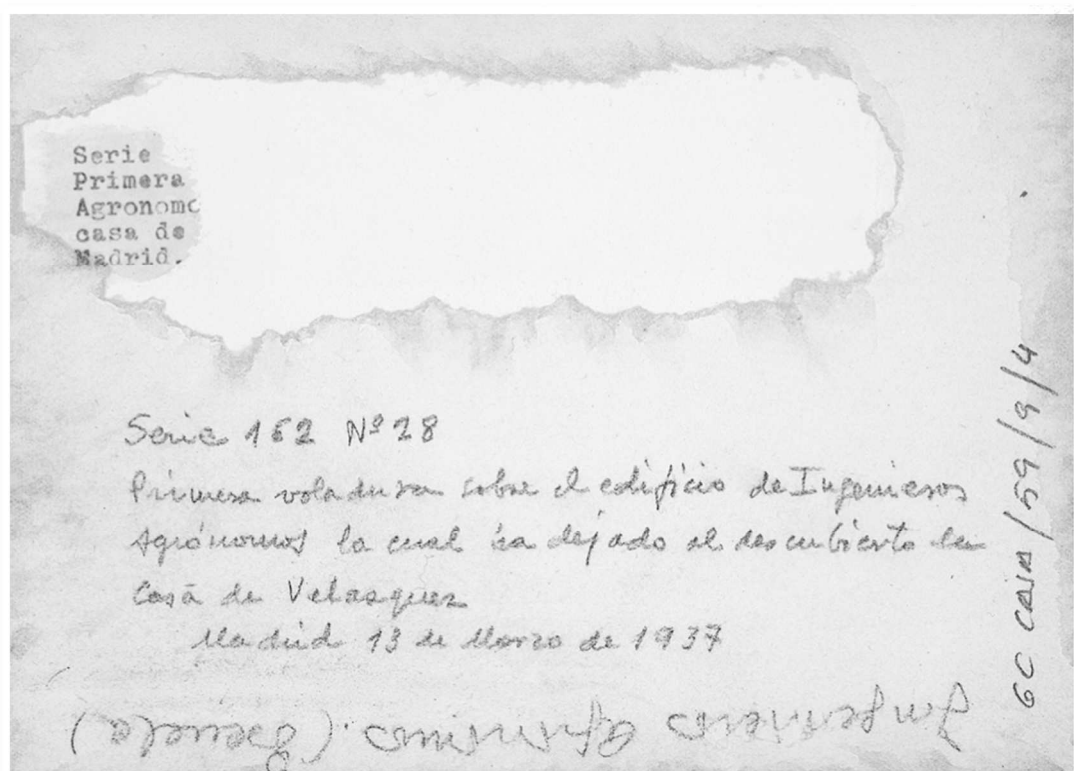 Serie
Primera
Agronomo
casa de
Madrid.
Serie 162 Nº 28
Primera voladura sobre el edificio de Ingenieros
Agrónomos la cual ha dejado al descubierto la
Casa de Velasquez
Madrid 13 de Marzo de 1937
Ingenieros Agrónomos. (Escuela)
GC CAJA/59/9/4